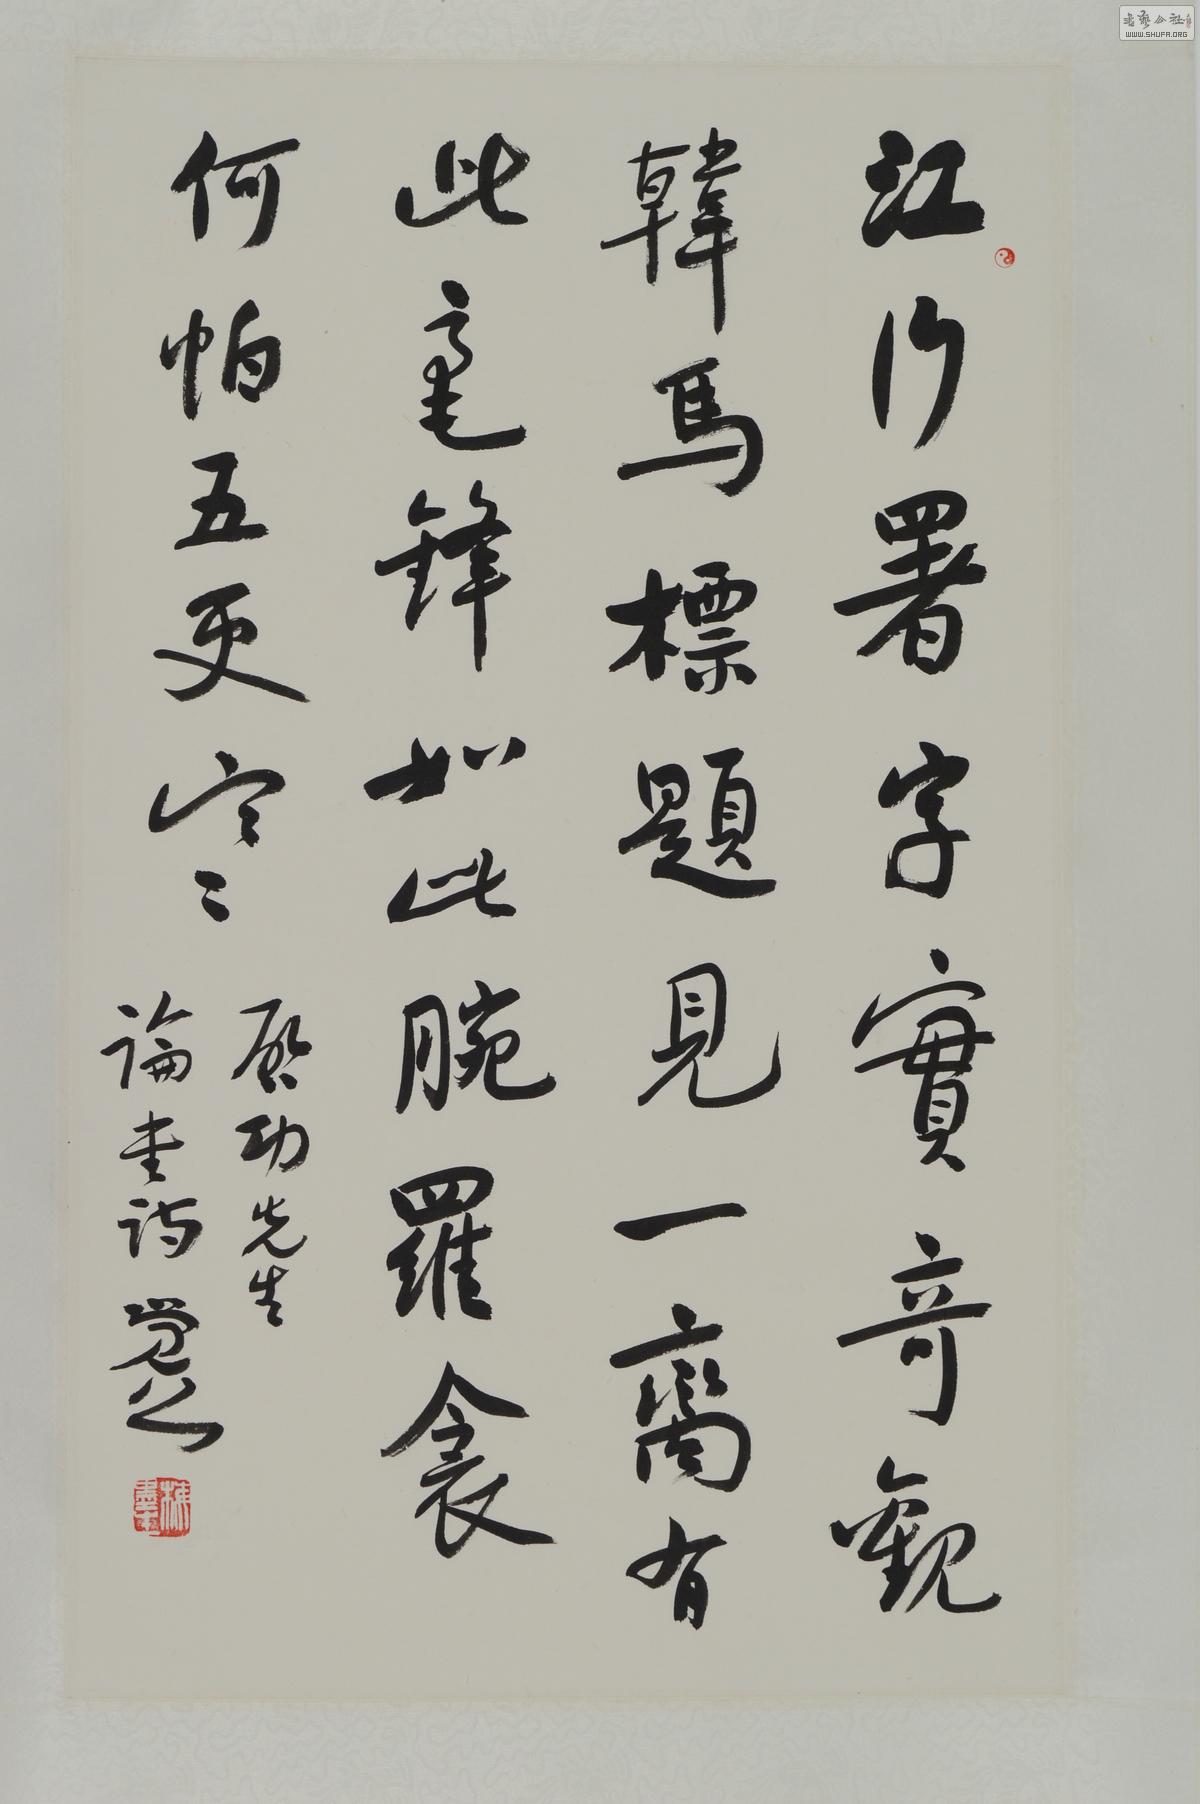 江行署字實奇觀
韓馬標題見一臠有
此毫鋒如此腕羅衾
何怕五更寒
啟功先生
論書詩
書藝公社
WWW.SHUFA.ORG